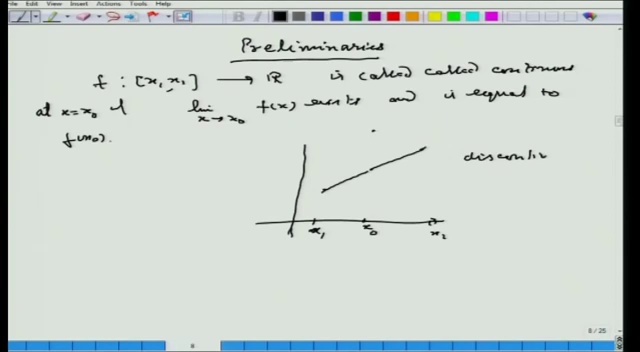 Edit View Insert Actions Tools Help
Preliminaries
f : [x₁, x₁] → ℝ is called called continuous
at x=x₀ if lim x→x₀ f(x) exists and is equal to
f(x₀).
discontin
x₁ x₀ x₂
8 / 25
8